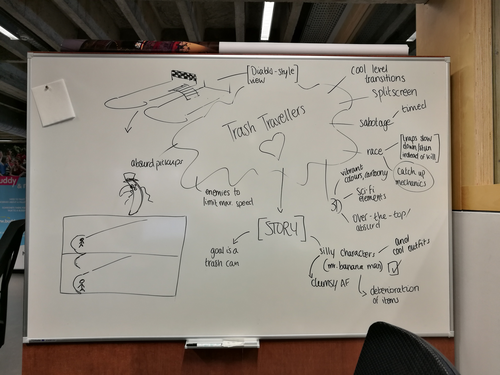 [Diablo-style
view]
cool level
transitions
splitscreen
sabotage
timed
race
[traps slow
down/stun
instead of kill]
catch up
mechanics
Trash Travellers
absurd pickups
enemies to
limit max. speed
3D
vibrant
colours, cartoony
sci-fi
elements
over-the-top/
absurd
[STORY]
goal is a
trash can
silly characters
(mr. banana man)
and
cool outfits
clumsy AF
deterioration
of items
uddy